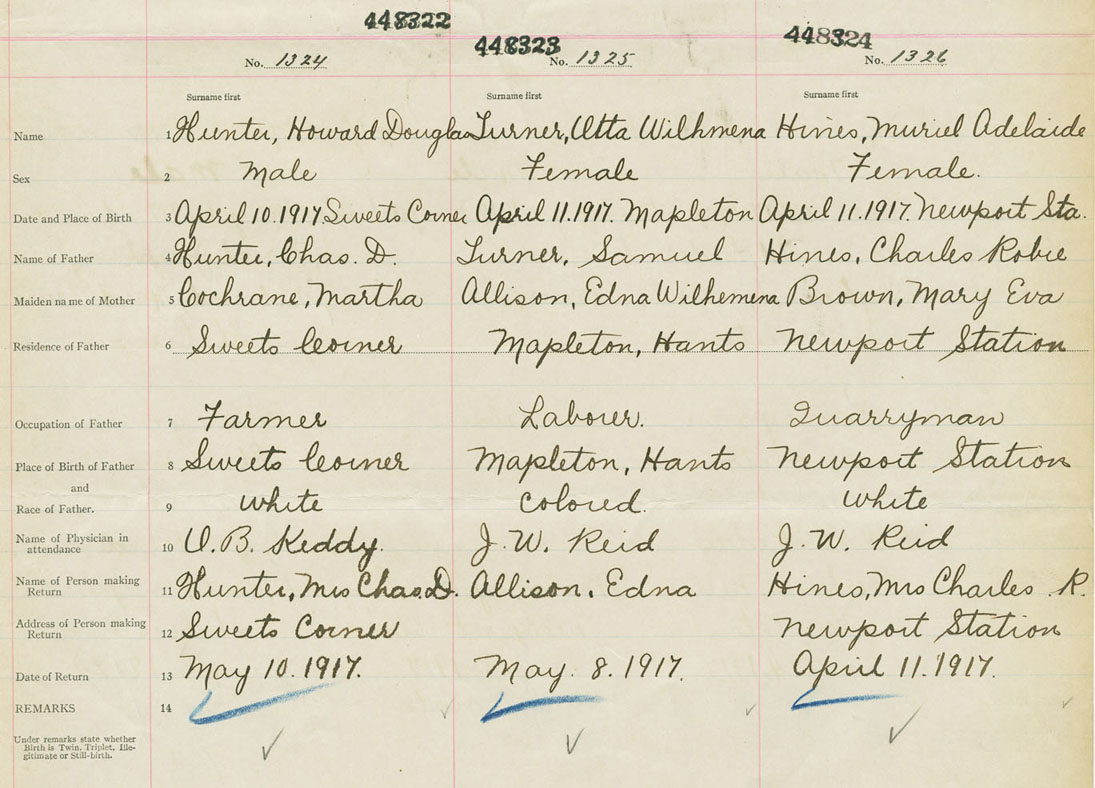 448322 448323 448324
No. 1324 No. 1325 No. 1326
Surname first Surname first Surname first
Name 1 Hunter, Howard Douglas Turner, Utta Wilhmena Hines, Muriel Adelaide
Sex 2 Male Female Female.
Date and Place of Birth 3 April 10.1917. Sweets Corner April 11.1917. Mapleton April 11.1917. Newport Sta.
Name of Father 4 Hunter, Chas. D. Turner, Samuel Hines, Charles Robie
Maiden name of Mother 5 Cochrane, Martha Allison, Edna Wilhemena Brown, Mary Eva
Residence of Father 6 Sweets Corner Mapleton, Hants Newport Station
Occupation of Father 7 Farmer Laborer. Quarryman
Place of Birth of Father 8 Sweets Corner Mapleton, Hants Newport Station
and
Race of Father. 9 White Colored. White
Name of Physician in
attendance 10 O. B. Keddy. J. W. Reid J. W. Reid
Name of Person making
Return 11 Hunter, Mrs Chas. D. Allison, Edna Hines, Mrs Charles R.
Address of Person making
Return 12 Sweets Corner Newport Station
Date of Return 13 May 10.1917. May. 8.1917. April 11.1917.
REMARKS 14
Under remarks state whether
Birth is Twin, Triplet, Ille-
gitimate or Still-birth.